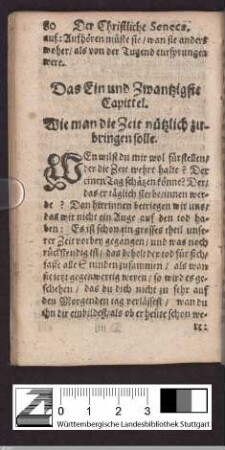 80 Der Christliche Seneca.
auf: Aufhören müste sie / wan sie anders
woher / als von der Tugend entsprungen
were.
Das Ein und Zwantzigste
Capittel.
Wie man die Zeit nützlich zu-
bringen solle.
WEn wilst du mir wol fürstellen /
der die Zeit wehrt halte? Der
einen Tag schäzen könne? Der /
das er täglich sterbe / innen wer-
de? Dan hierinnen betriegen wir uns /
das wir nicht ein Auge auf den tod ha-
ben: Es ist schon ein grosses theil unse-
rer Zeit vorbey gegangen / und was noch
rückstendig ist / das behelt der tod für sich /
faße alle Stunden zusammen / als wan
sie ietzt gegenwertig weren / so wird es ge-
schehen / das du dich nicht zu sehr auf
den Morgenden tag verlässest / wan du
ihn dir einbildest / als ob er heute schon we-
re:
Württembergische Landesbibliothek Stuttgart